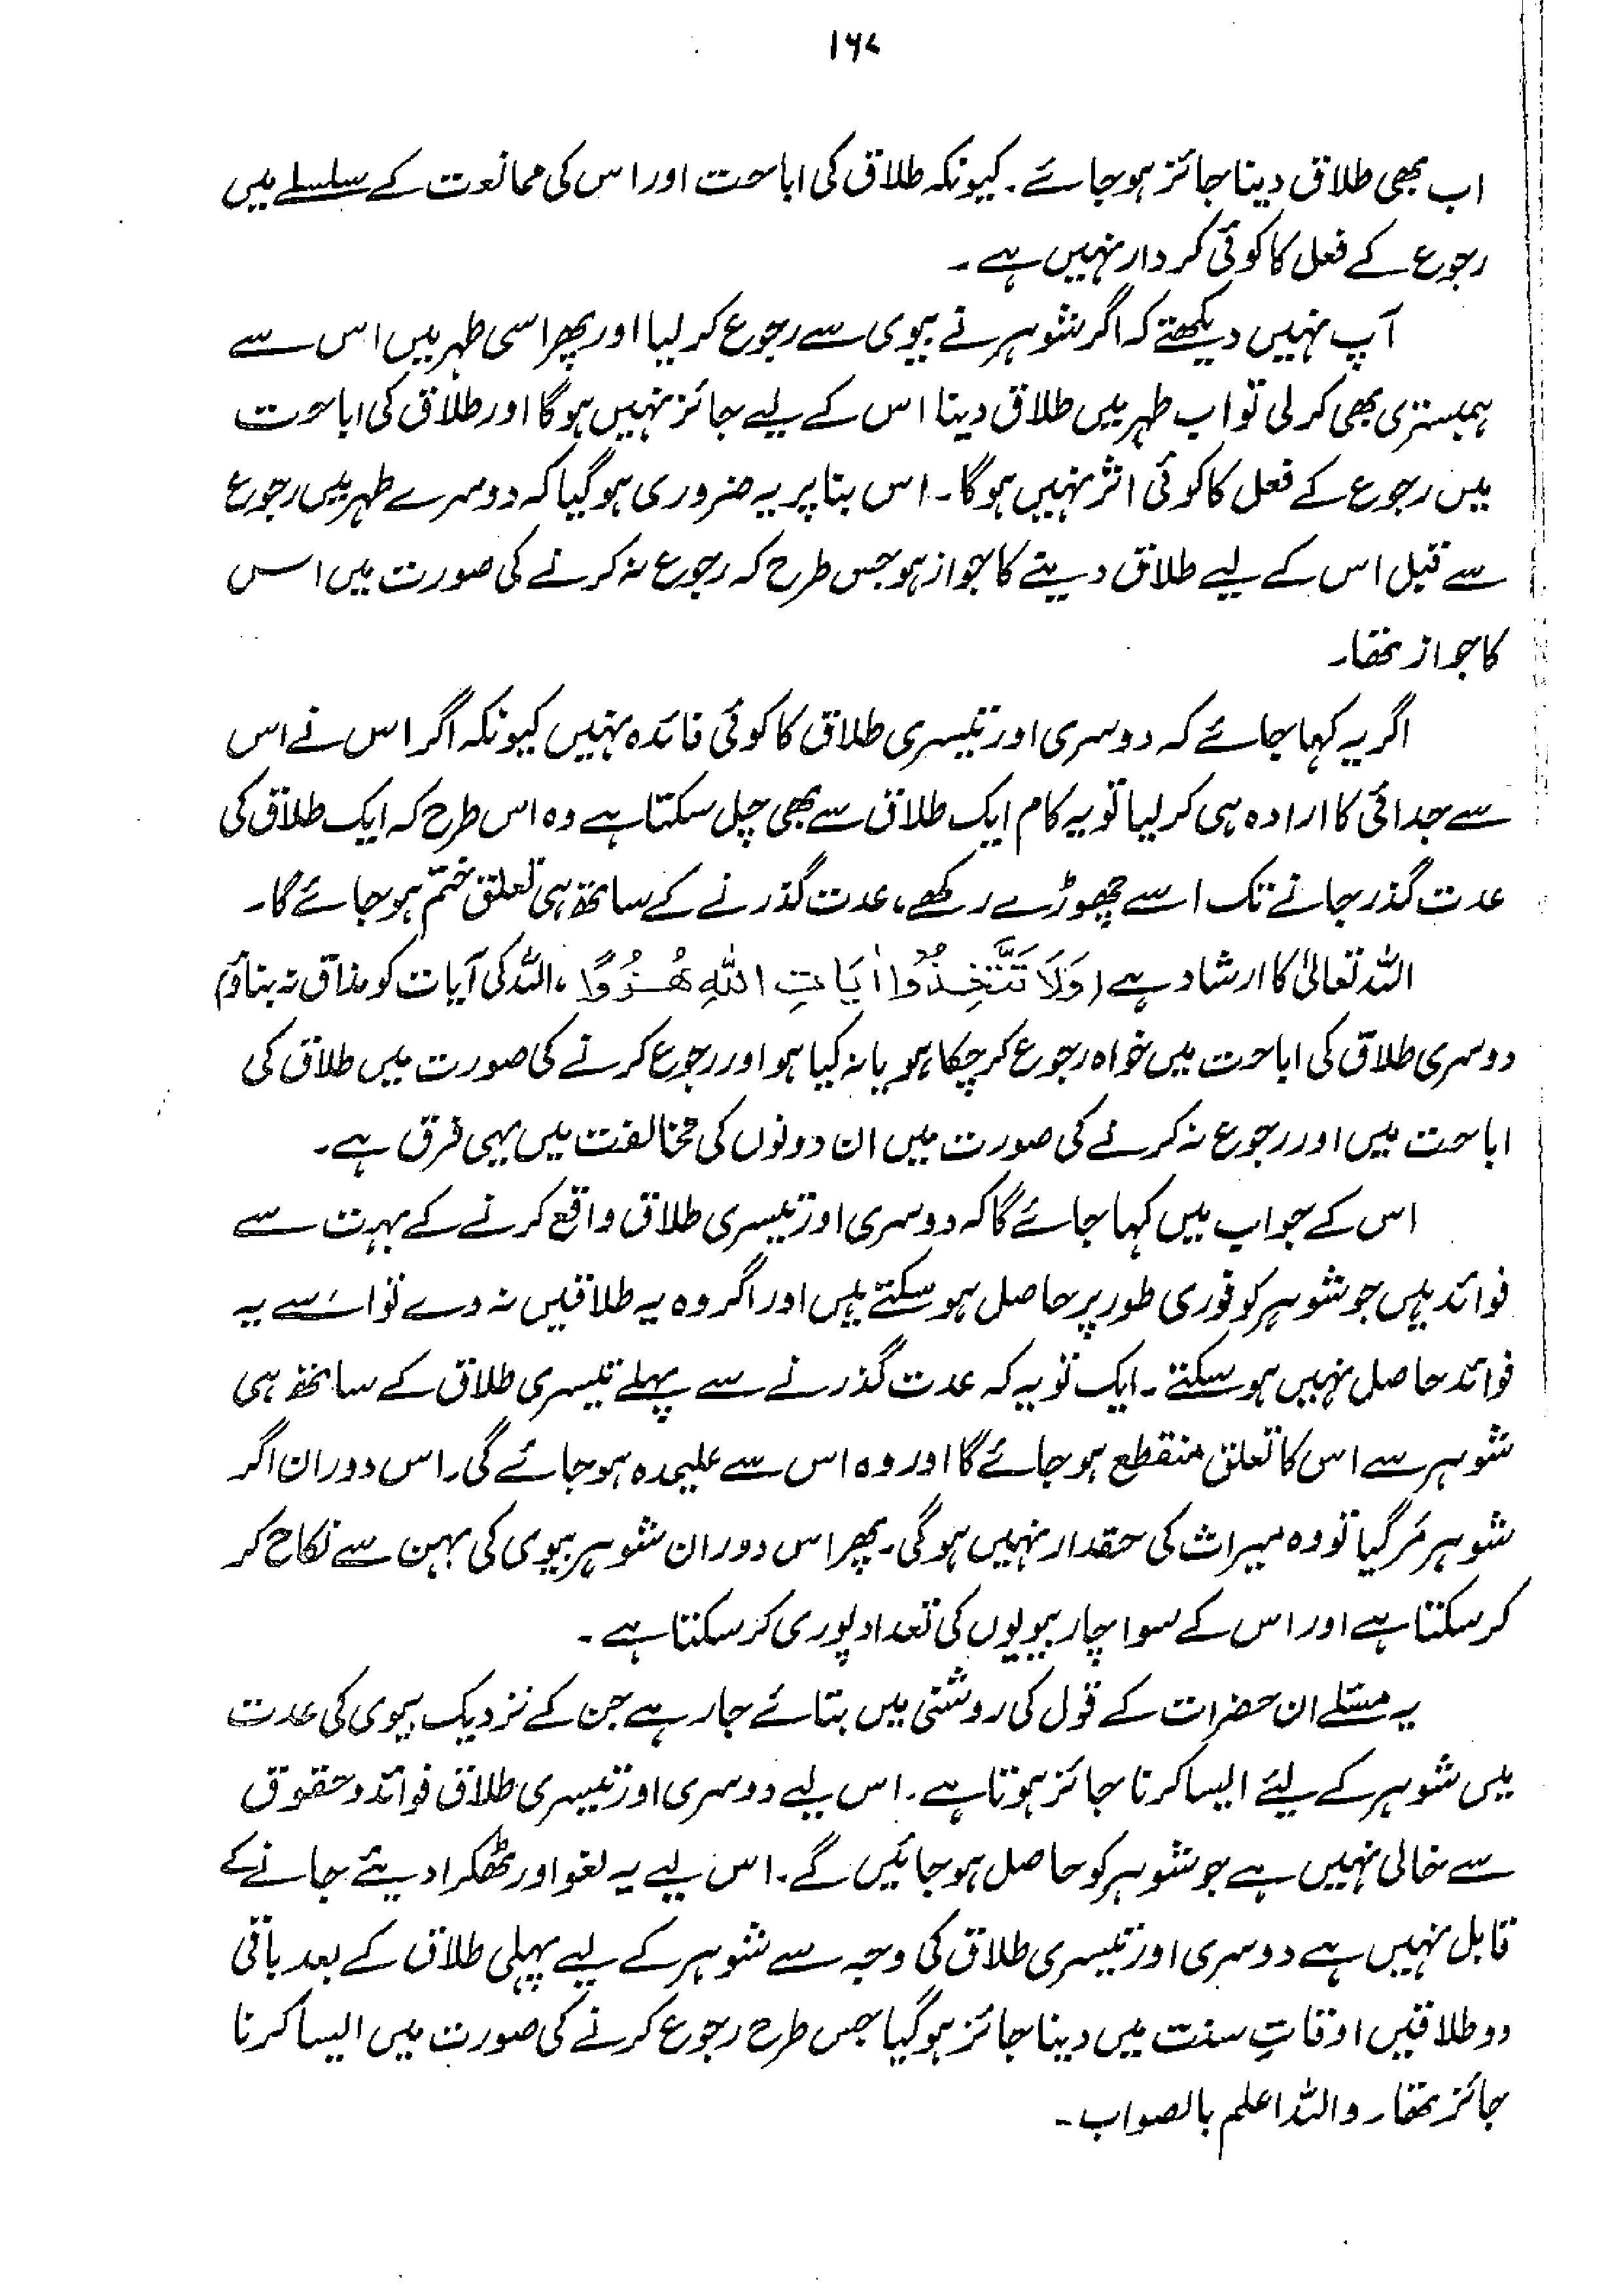 ۱۶۷
اب بھی طلاق دینا جائز ہو جائے۔ کیونکہ طلاق کی اباحت اور اس کی ممانعت کے سلسلے میں
رجوع کے فعل کا کوئی کردار نہیں ہے۔
آپ نہیں دیکھتے کہ اگر شوہر نے بیوی سے رجوع کر لیا اور پھر اسی طہر میں اس سے
ہمبستری بھی کر لی تو اب طہر میں طلاق دینا اس کے لیے جائز نہیں ہوگا اور طلاق کی اباحت
میں رجوع کے فعل کا کوئی اثر نہیں ہوگا۔ اس بنا پر یہ ضروری ہو گیا کہ دوسرے طہر میں رجوع
سے قبل اس کے لیے طلاق دینے کا جواز ہو جس طرح کہ رجوع نہ کرنے کی صورت میں اس
کا جواز تھا۔
اگر یہ کہا جائے کہ دوسری اور تیسری طلاق کا کوئی فائدہ نہیں کیونکہ اگر اس نے اس
سے جدائی کا ارادہ ہی کر لیا تو یہ کام ایک طلاق سے بھی چل سکتا ہے وہ اس طرح کہ ایک طلاق کی
عدت گذر جانے تک اسے چھوڑے رکھے، عدت گذرنے کے ساتھ ہی تعلق ختم ہو جائے گا۔
اللہ تعالیٰ کا ارشاد ہے (وَلَا تَتَّخِذُوْا اٰیَاتِ اللّٰهِ هُزُوًا، اللہ کی آیات کو مذاق نہ بناؤ)
دوسری طلاق کی اباحت میں خواہ رجوع کر چکا ہو یا نہ کیا ہو اور رجوع کرنے کی صورت میں طلاق کی
اباحت میں اور رجوع نہ کرنے کی صورت میں ان دونوں کی مخالفت میں یہی فرق ہے۔
اس کے جواب میں کہا جائے گا کہ دوسری اور تیسری طلاق واقع کرنے کے بہت سے
فوائد ہیں جو شوہر کو فوری طور پر حاصل ہو سکتے ہیں اور اگر وہ یہ طلاقیں نہ دے تو اسے یہ
فوائد حاصل نہیں ہو سکتے۔ ایک تو یہ کہ عدت گذرنے سے پہلے تیسری طلاق کے ساتھ ہی
شوہر سے اس کا تعلق منقطع ہو جائے گا اور وہ اس سے علیحدہ ہو جائے گی۔ اس دوران اگر
شوہر مَر گیا تو وہ میراث کی حقدار نہیں ہوگی۔ پھر اس دوران شوہر بیوی کی بہن سے نکاح کر
کر سکتا ہے اور اس کے سوا چار بیویوں کی تعداد پوری کر سکتا ہے۔
یہ مسئلے ان حضرات کے قول کی روشنی میں بتائے جا رہے جن کے نزدیک بیوی کی عدت
میں شوہر کے لیئے ایسا کرنا جائز ہوتا ہے۔ اس لیے دوسری اور تیسری طلاق فوائد و حقوق
سے خالی نہیں ہے جو شوہر کو حاصل ہو جائیں گے۔ اس لیے یہ لغو اور ٹھکرا دیئے جانے کے
قابل نہیں ہے دوسری اور تیسری طلاق کی وجہ سے شوہر کے لیے پہلی طلاق کے بعد باقی
دو طلاقیں اوقاتِ سنت میں دینا جائز ہو گیا جس طرح رجوع کرنے کی صورت میں ایسا کرنا
جائز تھا۔ واللہ اعلم بالصواب۔